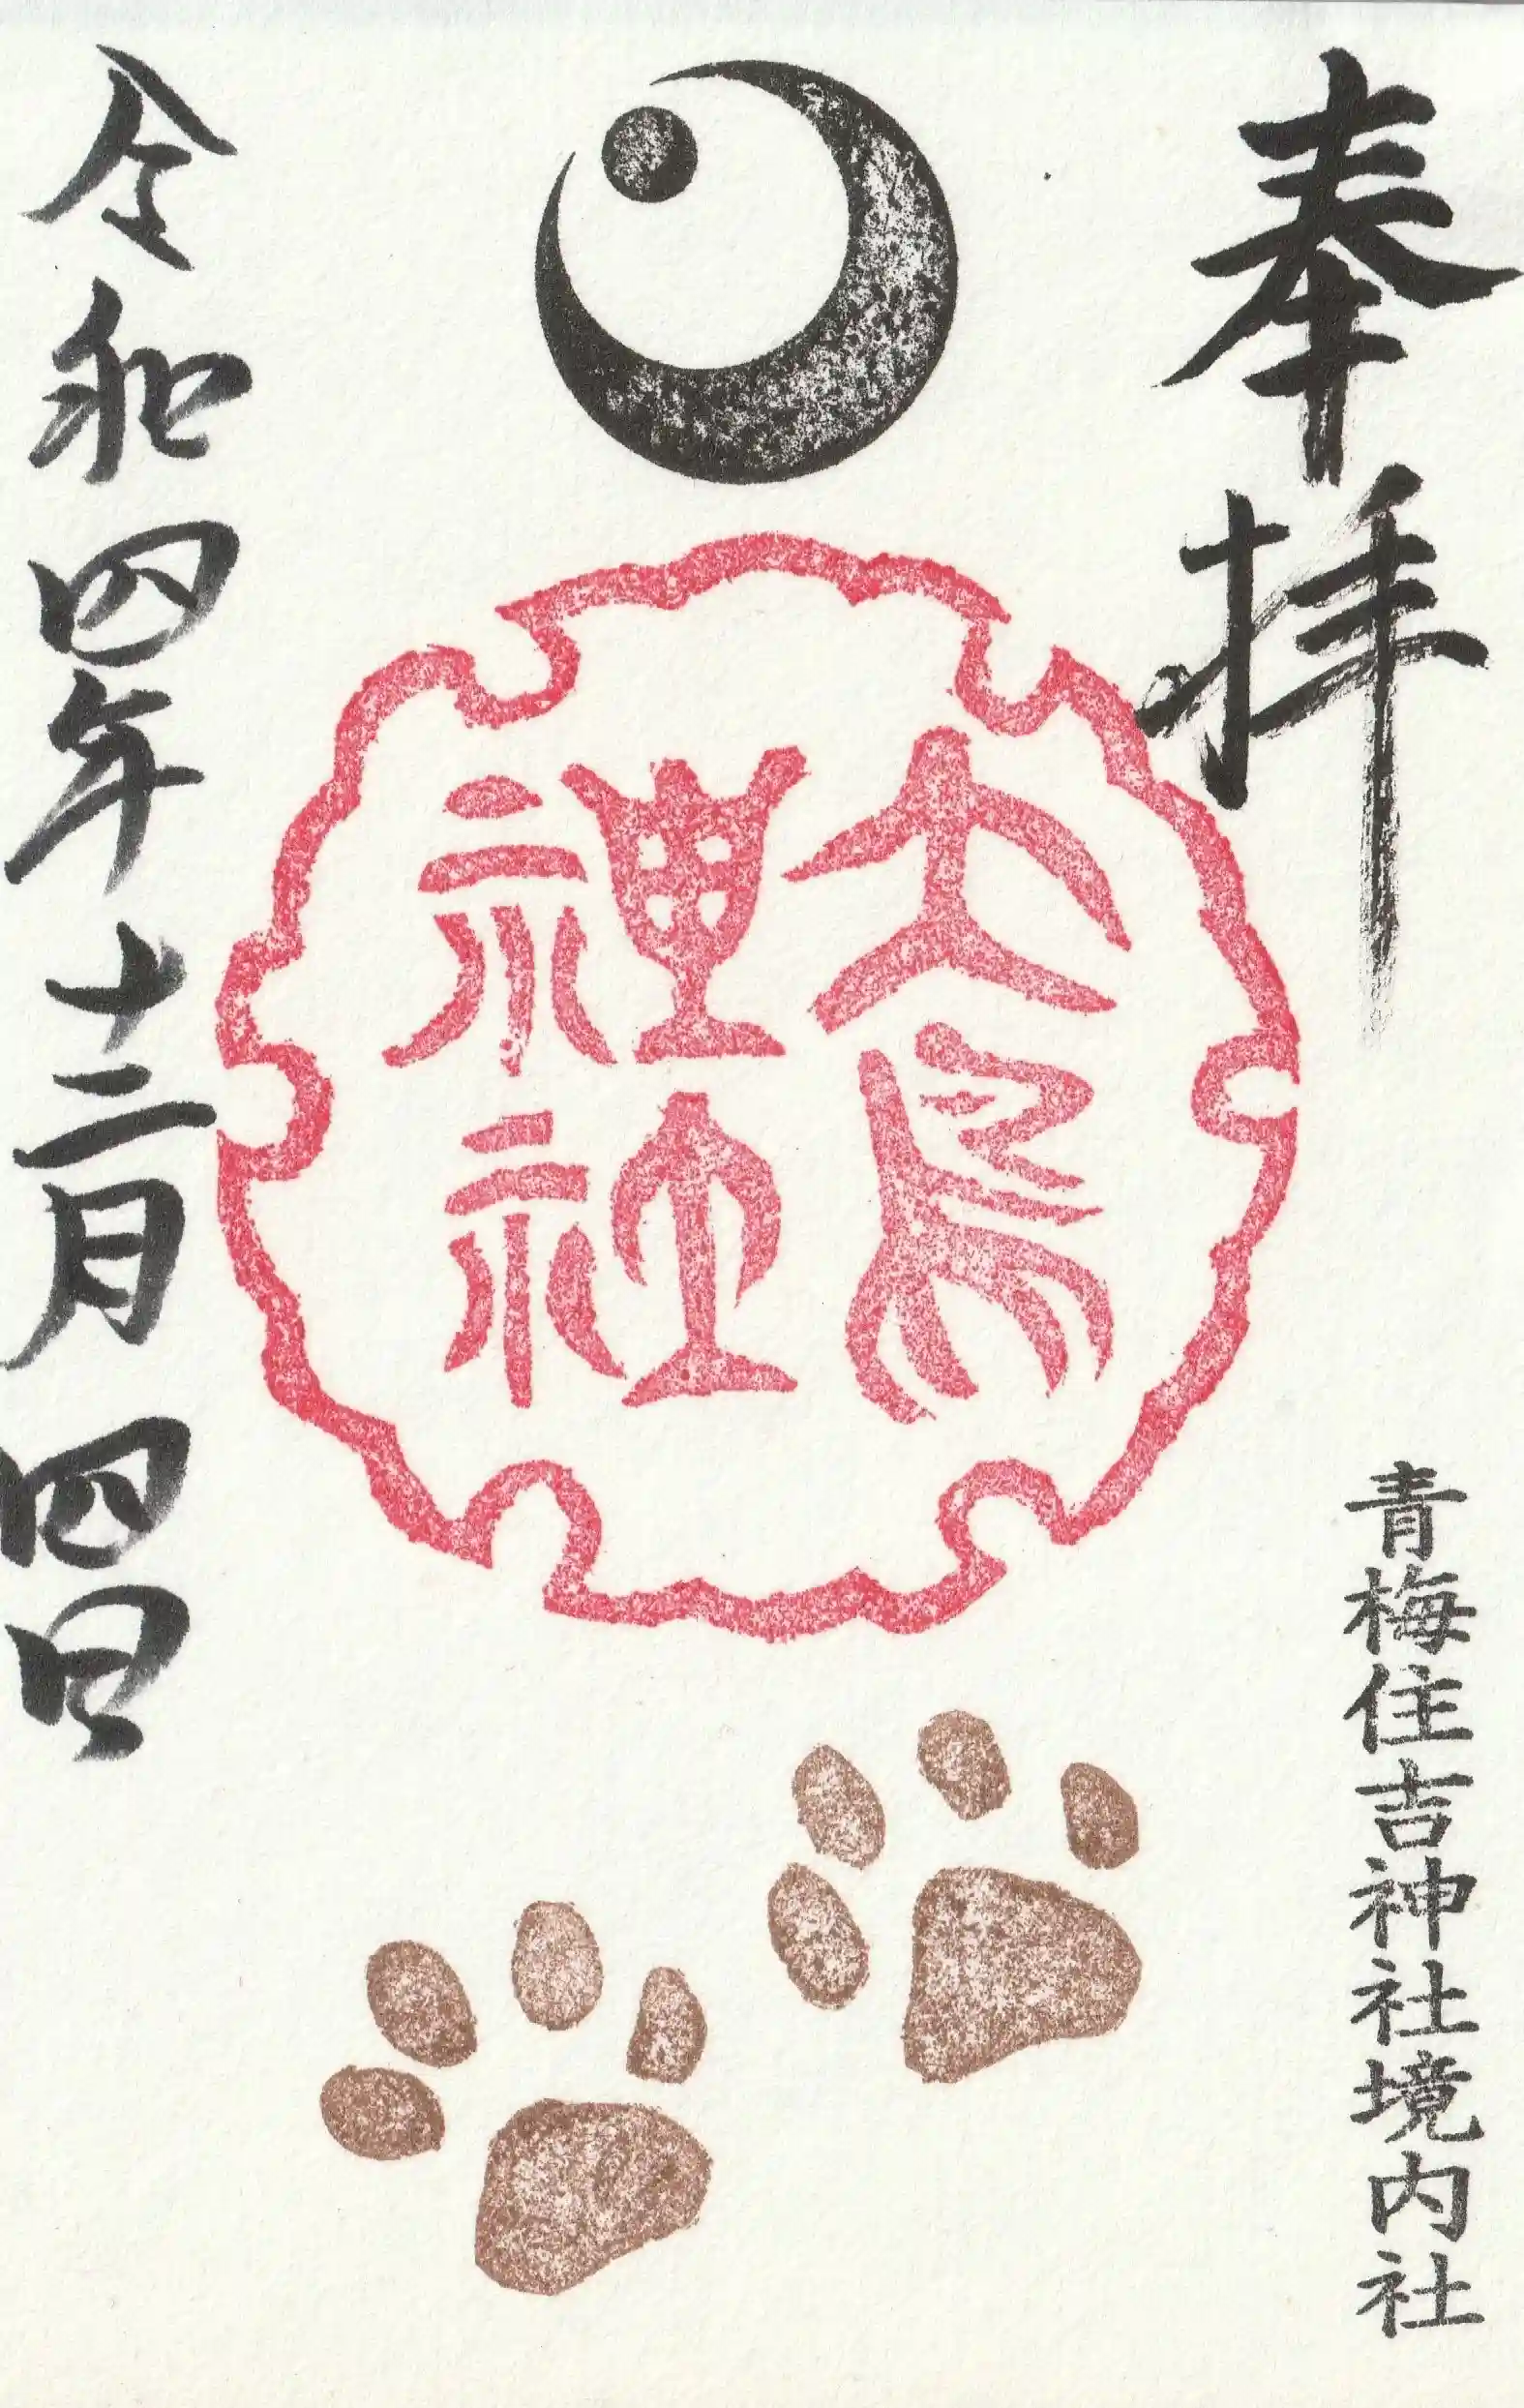 奉拝
青梅住吉神社境内社
大鳥
神社
令和四年十二月四日